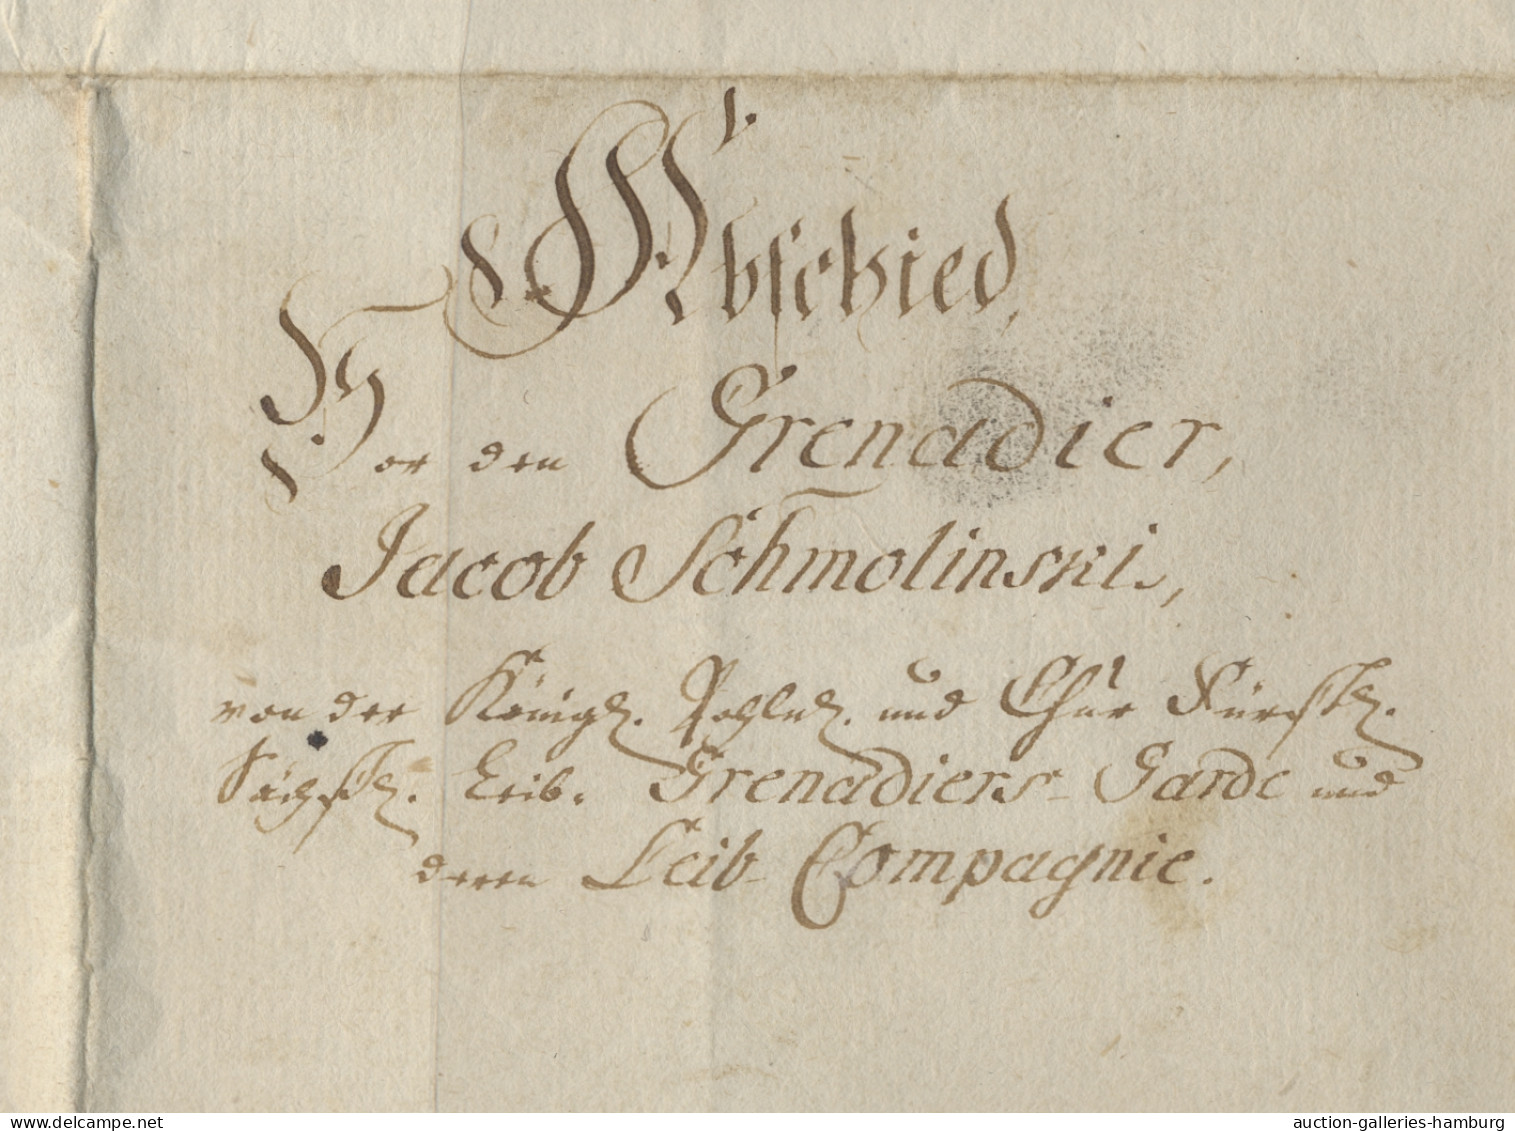 Abschied,
Vor den Grenadier,
Jacob Schmolinski,
von der Königl. Pohln. und Chur Fürstl.
Sächßl. Leib- Grenadiers-Garde und
deren Leib-Compagnie.
www.delcampe.net
auction-galleries-hamburg